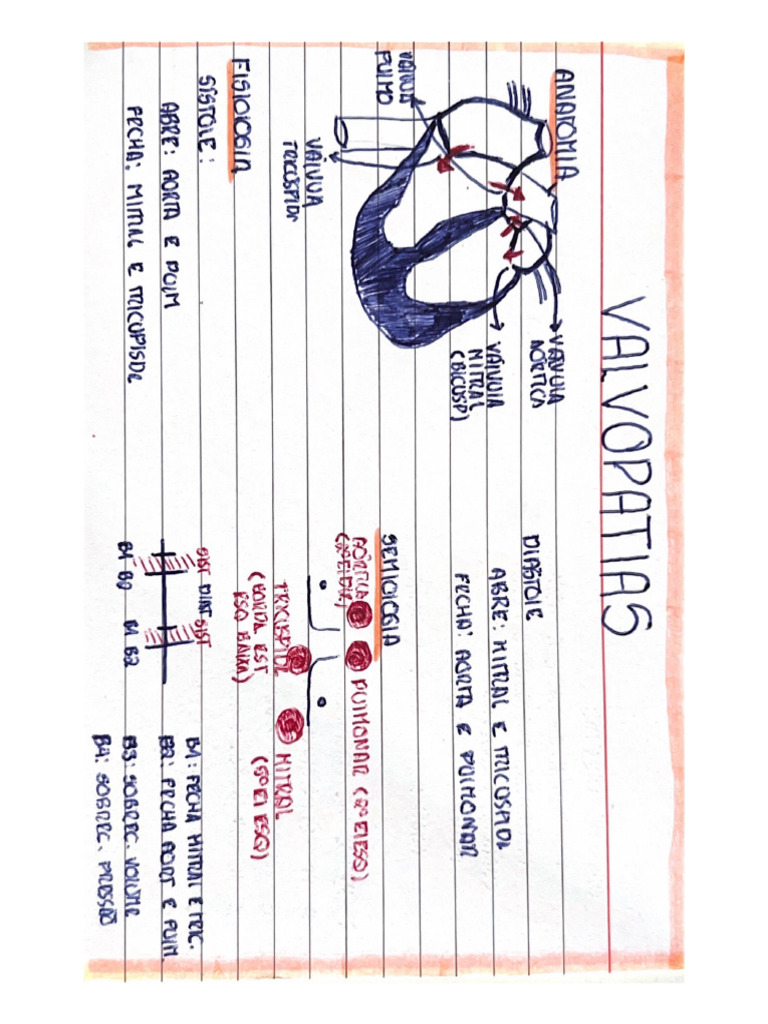 VALVOPATIAS
ANATOMIA
VÁLVULA
PULMO
VÁLVULA
AÓRTICA
VÁLVULA
MITRAL
(BICUSP)
VÁLVULA
TRICUSPIDE
FISIOLOGIA
SÍSTOLE:
ABRE: AORTA E PULM
FECHA: MITRAL E TRICUPISDE
DIASTOLE
ABRE: MITRAL E TRICUSPIDE
FECHA: AORTA E PULMONAR
SEMIOLOGIA
AÓRTICA
(2ºEIDIR)
PULMONAR (2ºEIESQ)
TRICUSPIDE
(BORDA EST
ESQ BAIXA)
MITRAL
(5ºEI ESQ)
SIST DIAST SIST
B1 B2 B1 B2
B1: FECHA MITRAL E TRIC.
B2: FECHA AORT E PULM.
B3: SOBREC. VOLUME
B4: SOBREC. PRESSÃO